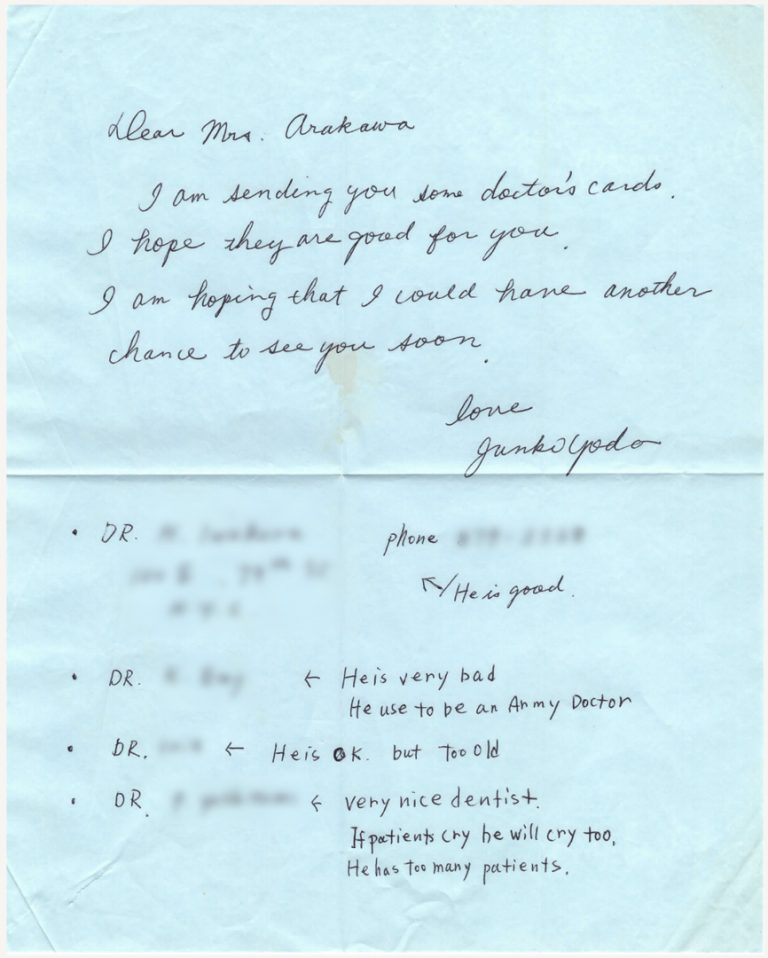 Dear Mrs. Arakawa
I am sending you some doctor's cards.
I hope they are good for you.
I am hoping that I could have another
chance to see you soon.
love
Junko Yoda
• DR.
phone
He is good.
• DR. ← He is very bad
He use to be an Army Doctor
• DR. ← He is OK. but too old
• DR. ← very nice dentist.
If patients cry he will cry too.
He has too many patients.